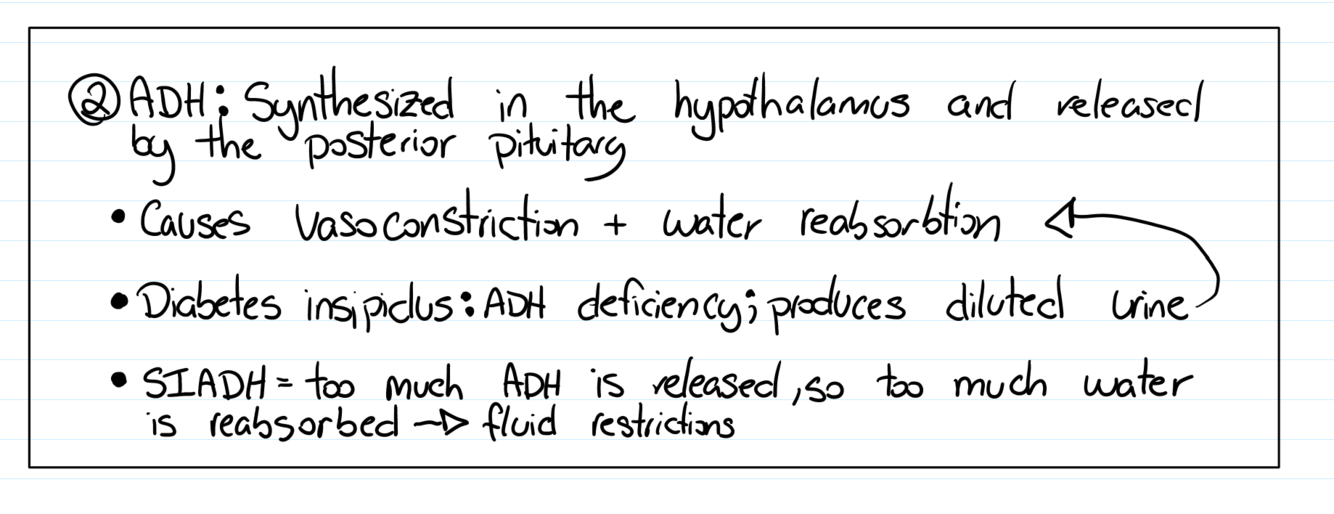 ② ADH: Synthesized in the hypothalamus and released
by the posterior pituitary
• Causes vasoconstriction + water reabsorbtion
• Diabetes insipidus: ADH deficiency; produces diluted urine
• SIADH = too much ADH is released, so too much water
is reabsorbed → fluid restrictions